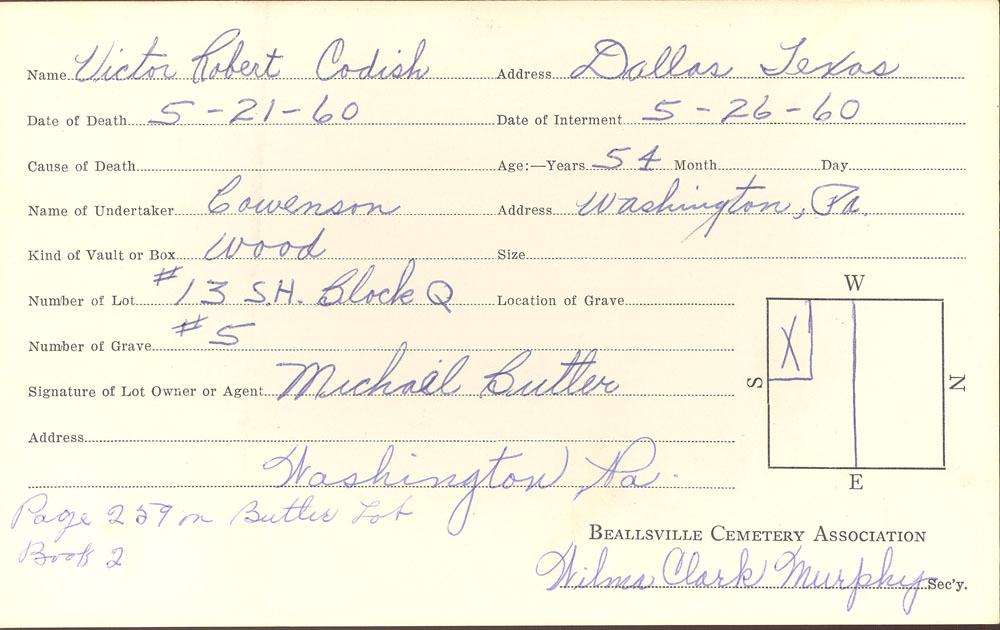 Name Victor Robert Codish Address Dallas Texas
Date of Death 5-21-60 Date of Interment 5-26-60
Cause of Death Age:—Years 54 Month Day
Name of Undertaker Cowenson Address Washington, Pa.
Kind of Vault or Box Wood Size
Number of Lot #13 S.H. Block Q Location of Grave
W
Number of Grave #5
X
Signature of Lot Owner or Agent Michael Butler
S N
Address
Washington, Pa.
E
Page 259 on Butler Lot
Book 2
BEALLSVILLE CEMETERY ASSOCIATION
Wilma Clark Murphy Sec'y.